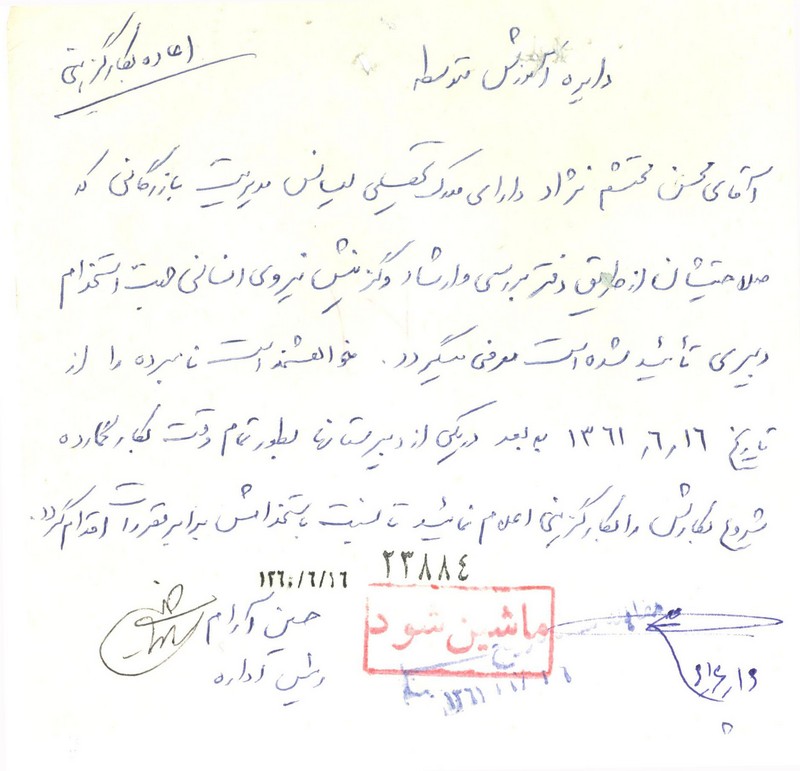 اعاده بکارگزینی
دایره آموزش متوسطه
آقای محسن محتشم نژاد دارای مدرک تحصیلی لیسانس مدیریت بازرگانی که
صلاحیتشان از طریق دفتر بررسی و ارشاد و گزینش نیروی انسانی جهت استخدام
دبیری تأئید شده است معرفی میگردد. خواهشمند است نامبرده را از
تاریخ ۱۳۶۱٫۶٫۱۶ به بعد در یکی از دبیرستانها بطور تمام وقت بکار گمارده
شروع بکارش را بکارگزینی اعلام نمائید تا نسبت باستخدامش برابر مقررات اقدام گردد.
۲۳۸۸۴
۱۳۶۰/۶/۱۶
ماشین شود
حسین آرام
رئیس اداره